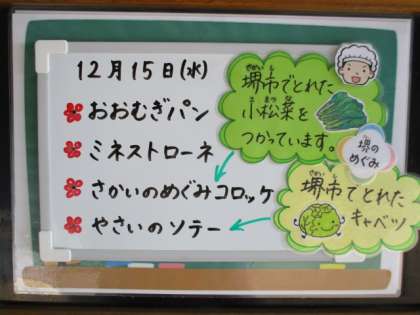 12月15日(水)
おおむぎパン
ミネストローネ
さかいのめぐみコロッケ
やさいのソテー
堺市でとれた
小松菜を
つかっています。
堺の
めぐみ
堺市でとれた
キャベツ